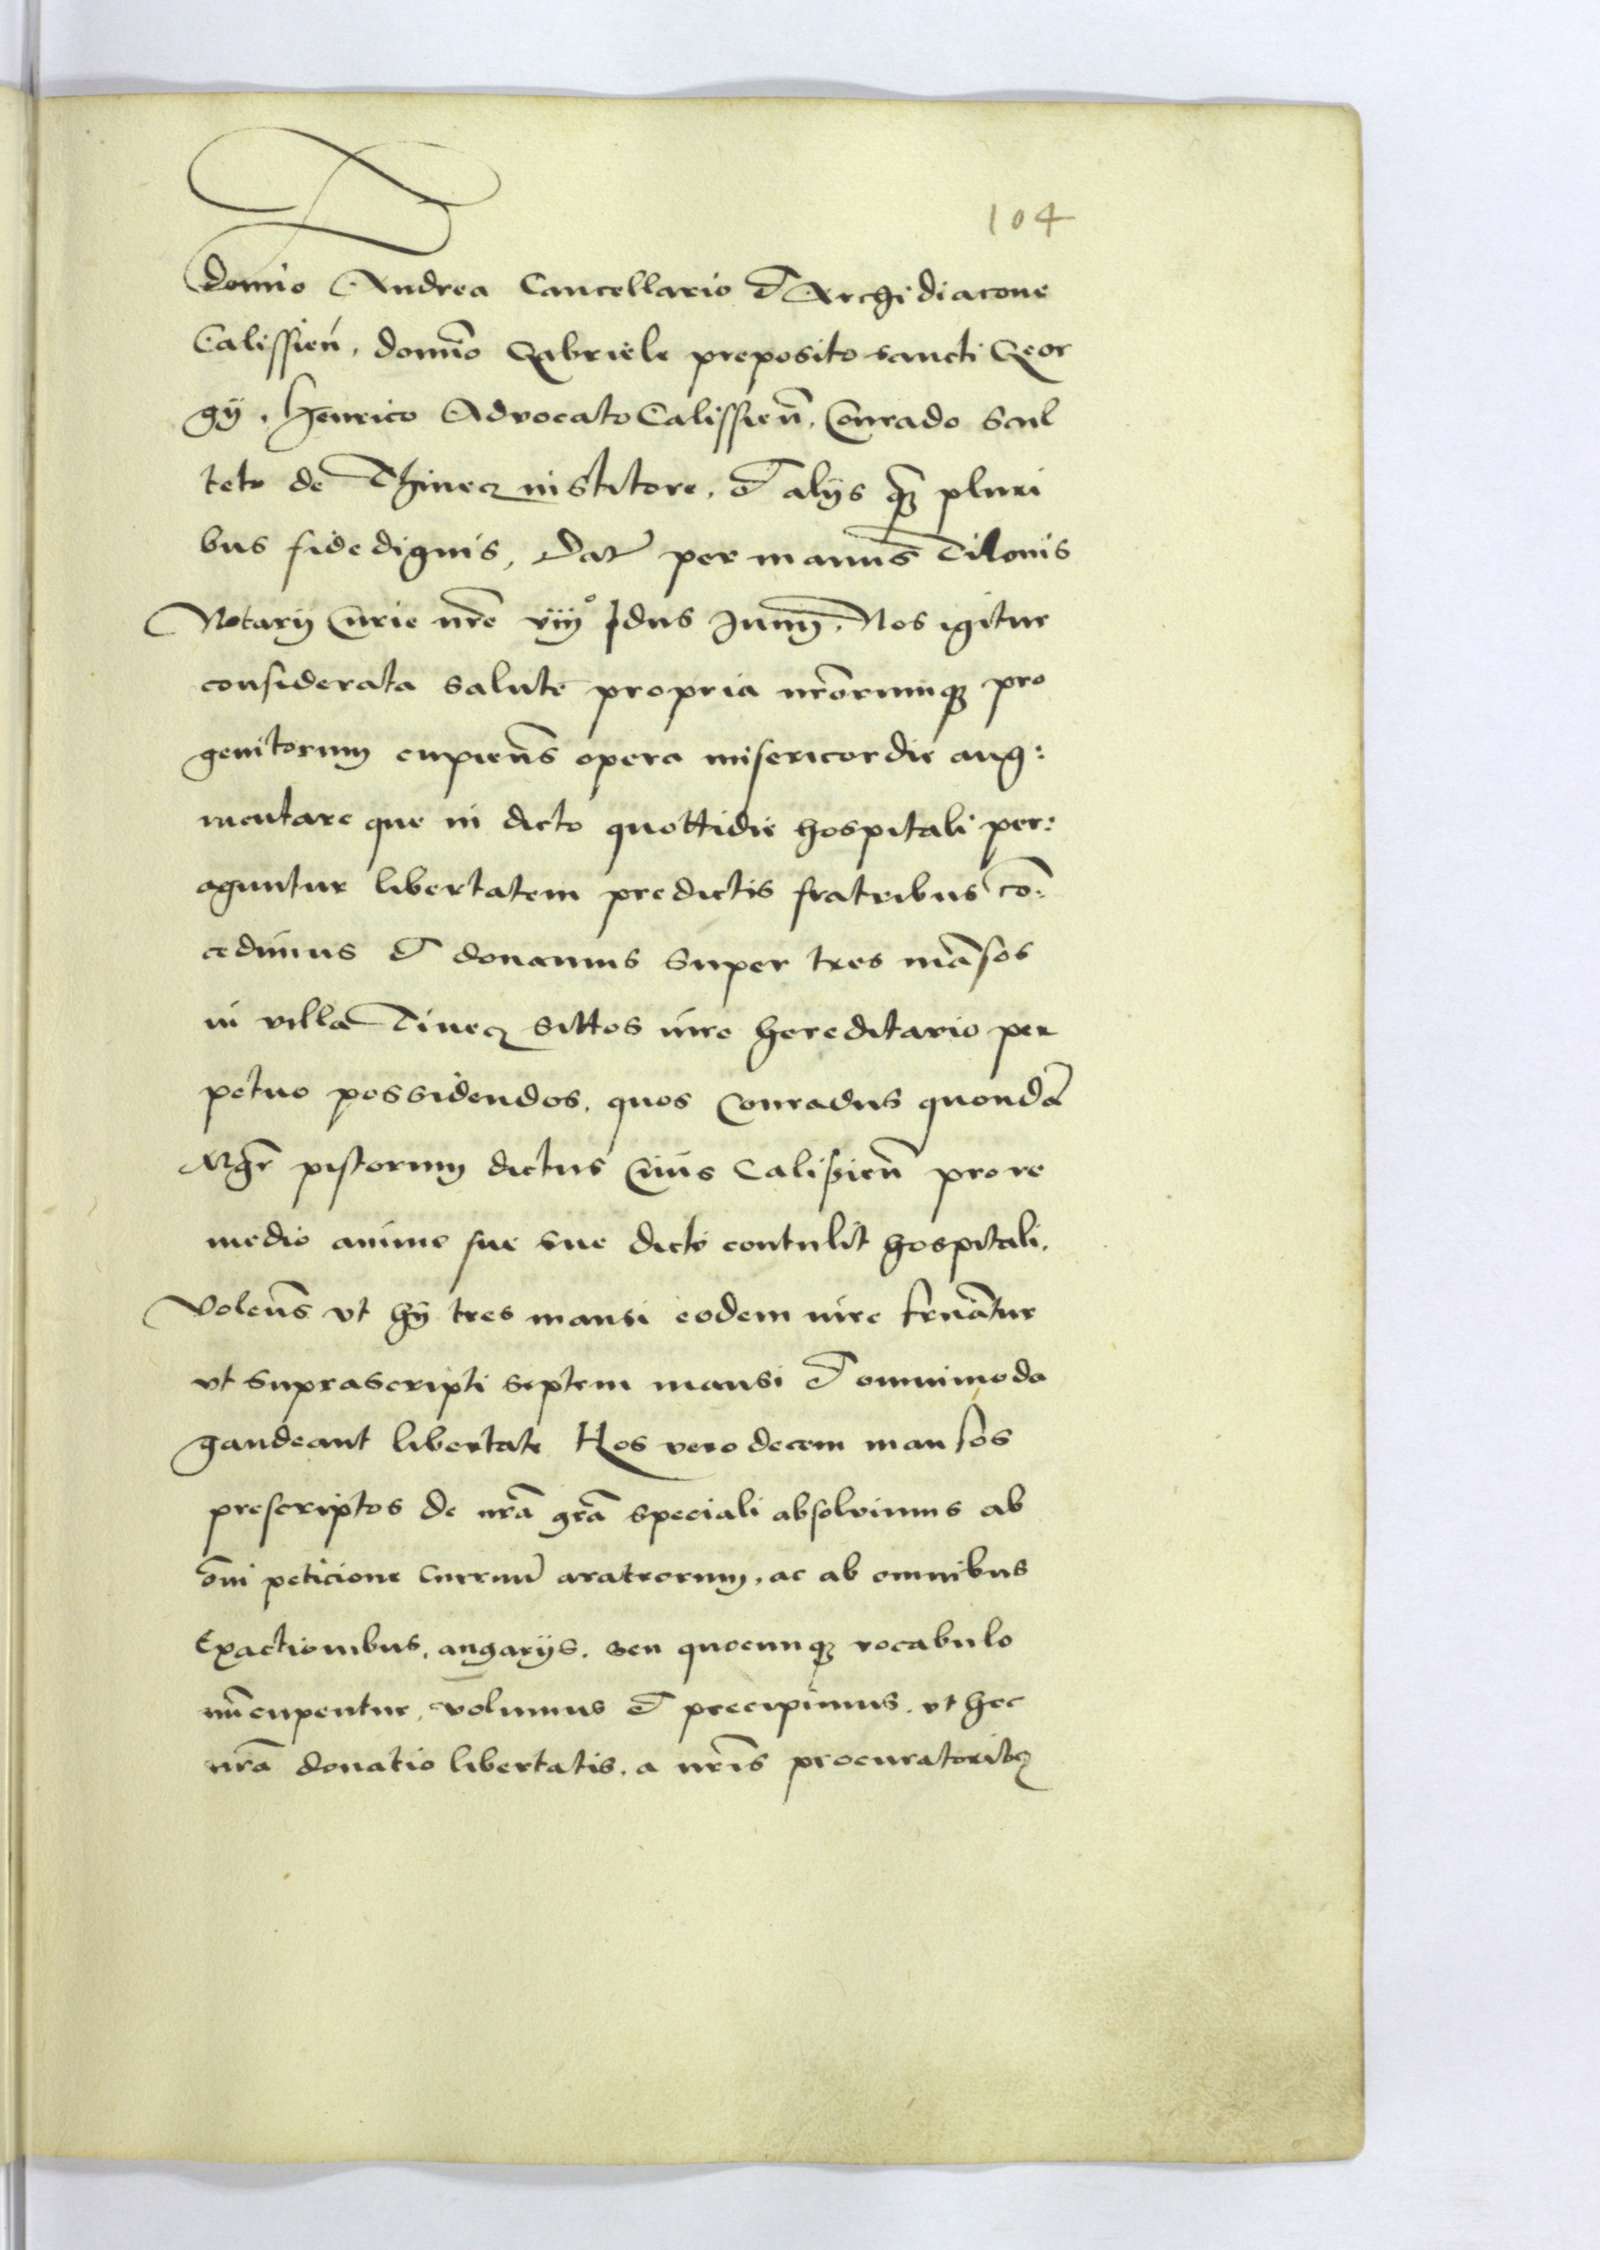 104
domino Andrea Cancellario et Archidiacono
Calissień, domīno Gabriele preposito sancti Geor
gij, Henrico Advocato Calissieñ, Conrado Scul
teto de Thinecz institore, et alijs q̃ȝ pluri
bus fidedignis, Dat̃ per manus Tilonis
Notarij Curie nr̃e viijº Idus Junij, Nos igitur
considerata salute propria nr̃orumqȝ pro
genitorum cupieñs opera misericordie aug:
mentare que in dicto quottidie hospitali per:
aguntur libertatem predictis fratribus cō:
cedimus et donamus super tres mãsos
in villa Tinecz sittos iure hereditario per
petuo possidendos, quos Conradus quondã
Mgr̃ pistorum dictus Ciuis Calisień pro re
medio anime sue sue dicto contulit hospitali,
Voleñs vt hij tres mansi eodem iure fruãtur
vt suprascripti septem mansi et omnimoda
gaudeant libertate Hos vero decem mansos
prescriptos de nr̃a gr̃a speciali absolvimus ab
õni peticione curruũ aratrorum, ac ab omnibus
Exactionibus, angarijs, seu quocunqȝ vocabulo
nũcupentur, volumus et precipimus, vt hec
nr̃a donatio libertatis, a nr̃is procuratoribȝ